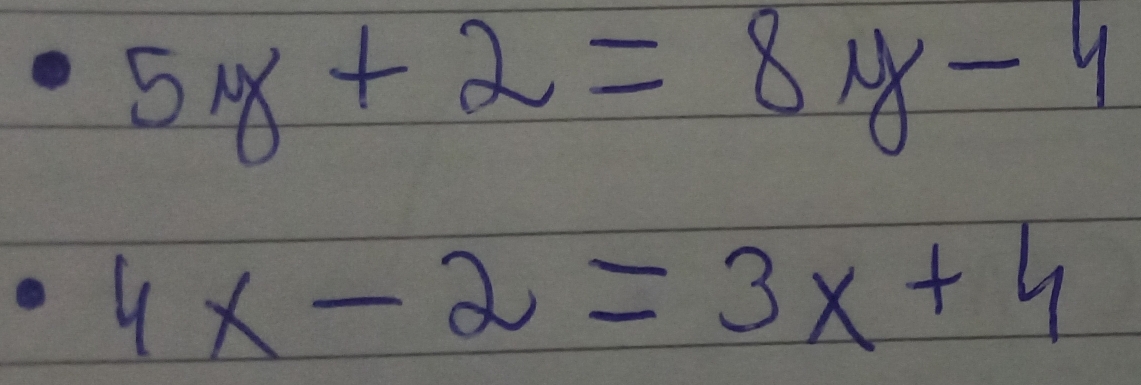 • 5y + 2 = 8y - 4
• 4x - 2 = 3x + 4